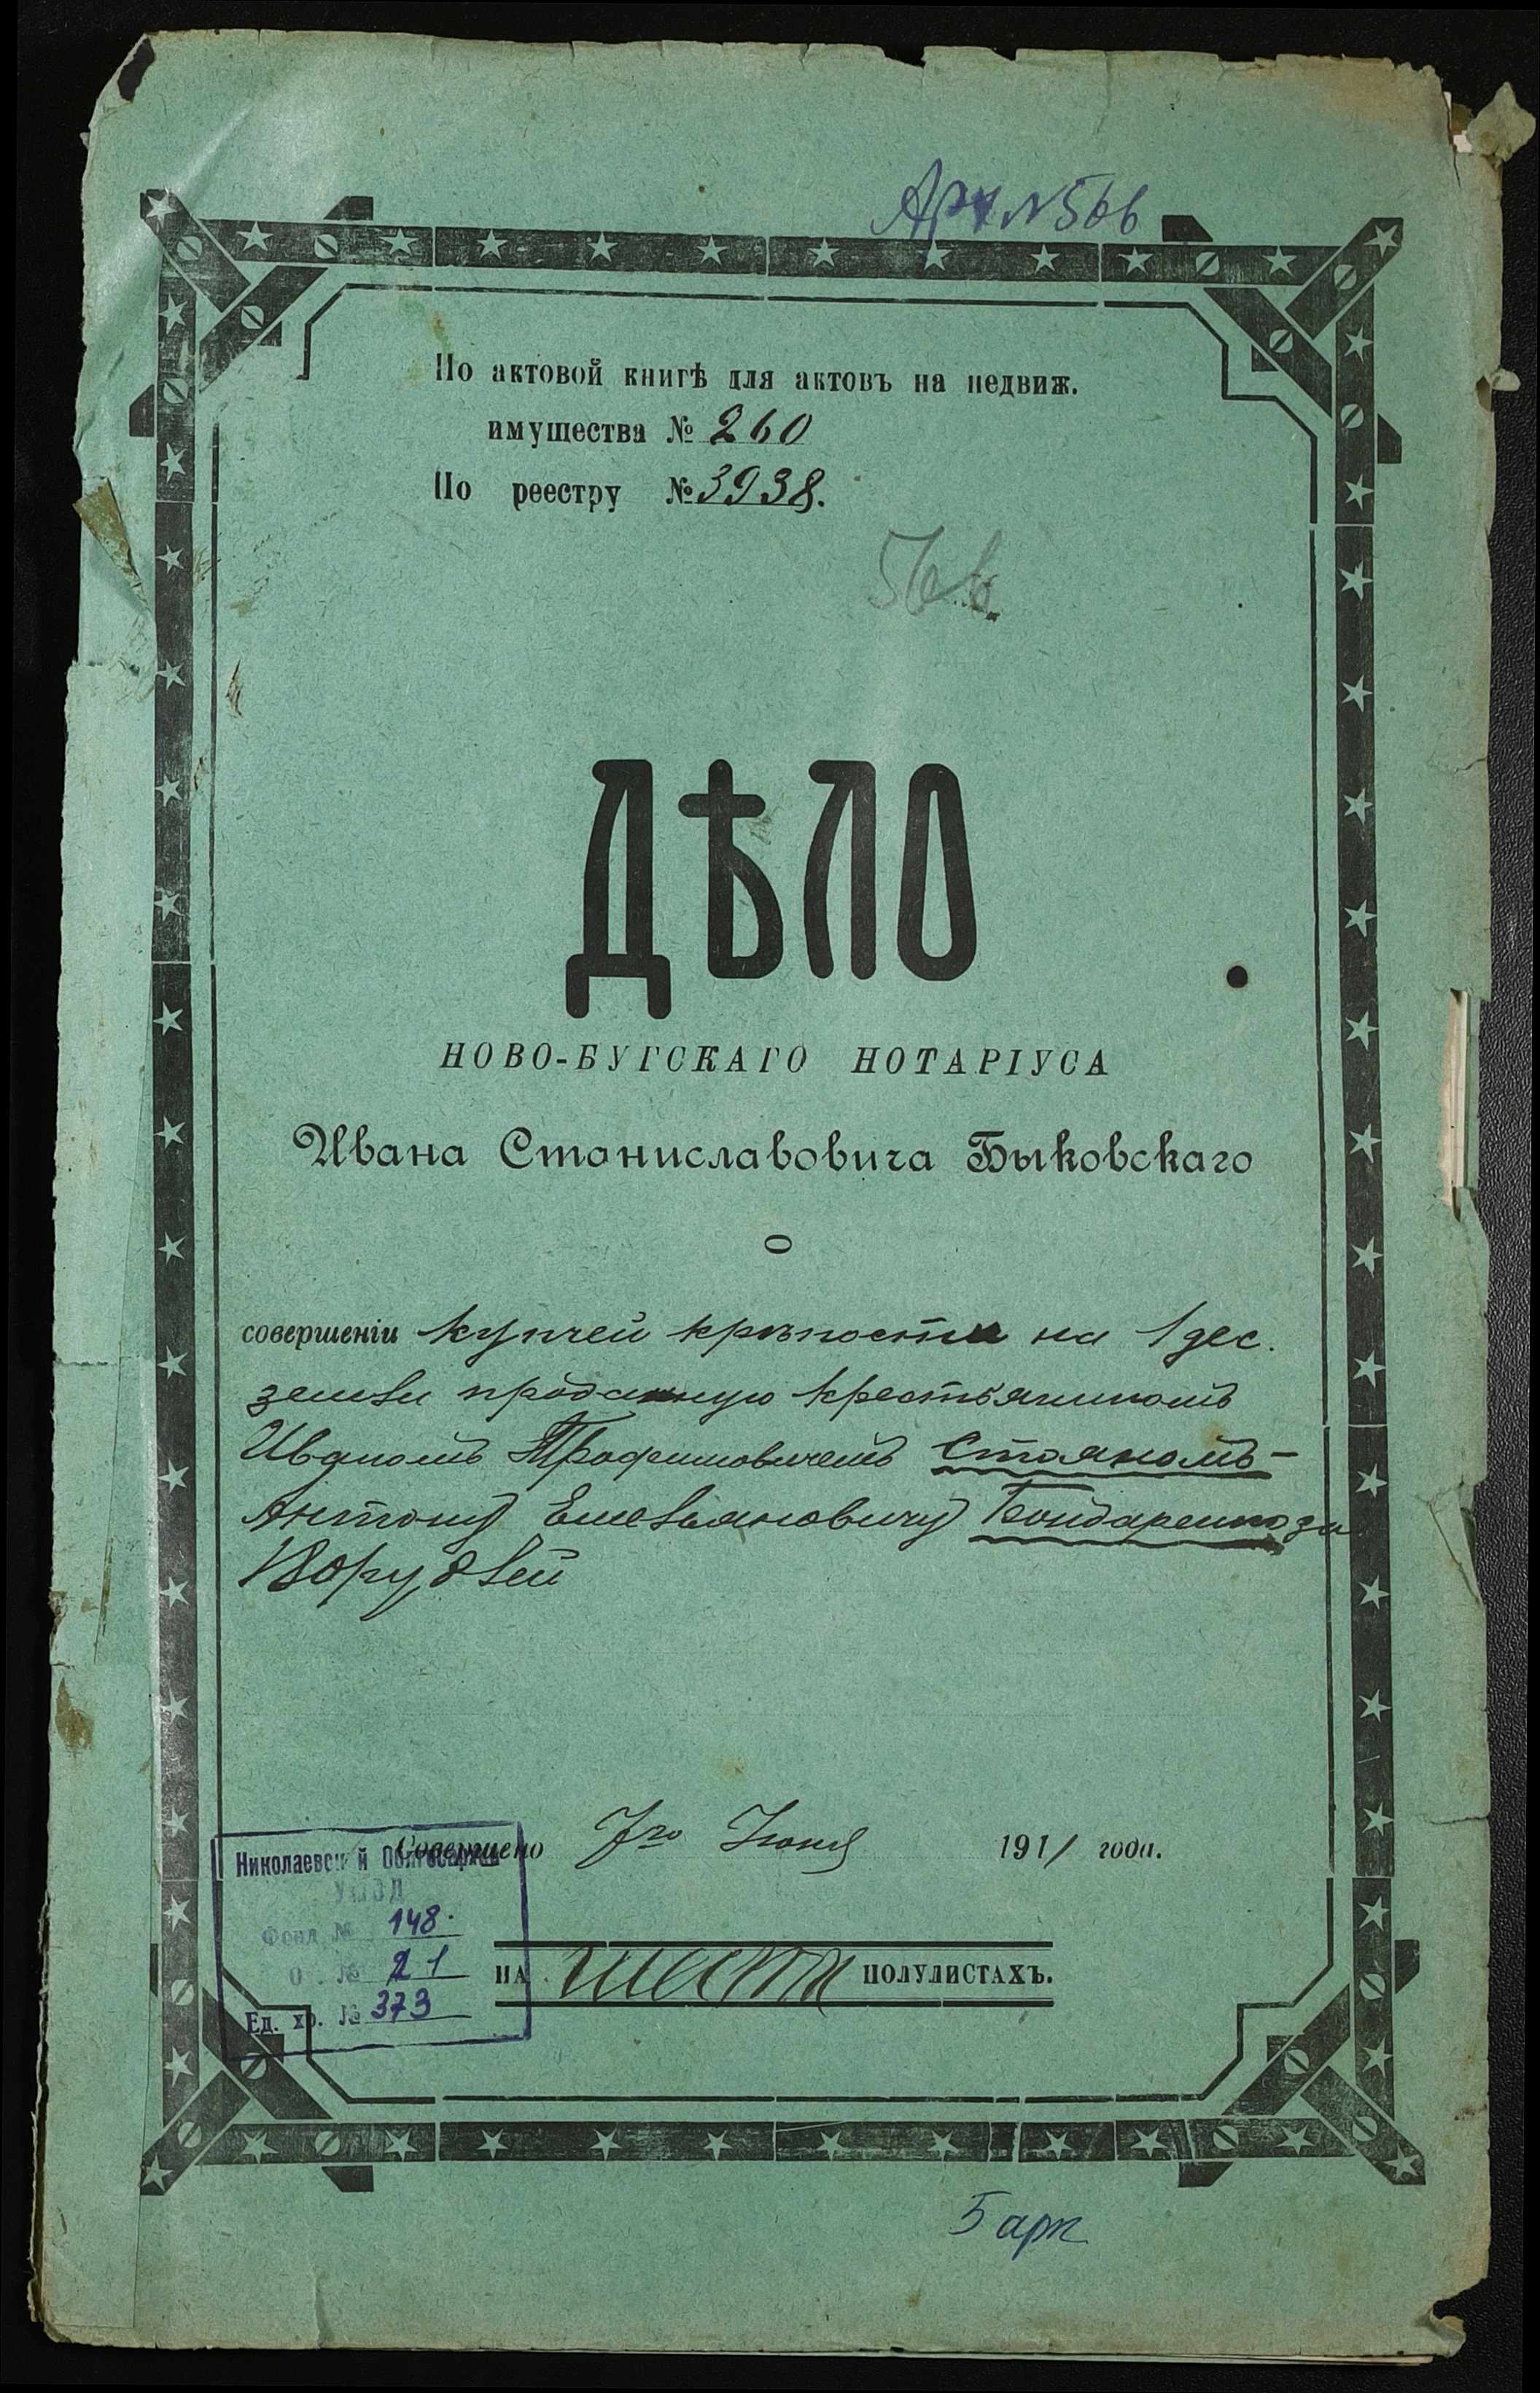 Арх №566
По актовой книгѣ для актовъ на недвиж.
имущества № 260
По реестру № 3938.
566.
ДѢЛО
НОВО-БУГСКАГО НОТАРІУСА
Ивана Станиславовича Быковскаго
О
совершеніи купчей крѣпости на 1 дес.
земли проданную крестьяниномъ
Иваномъ Трофимовичемъ Стояномъ-
Антону Емельяновичу Бондаренко за
рублей
Совершено 7го Іюня 1911 года.
Николаевский Облгосархив
УМВД
Фонд № 148.
О. № 21
Ед. хр. № 373
НА шести ПОЛУЛИСТАХЪ.
5 арк